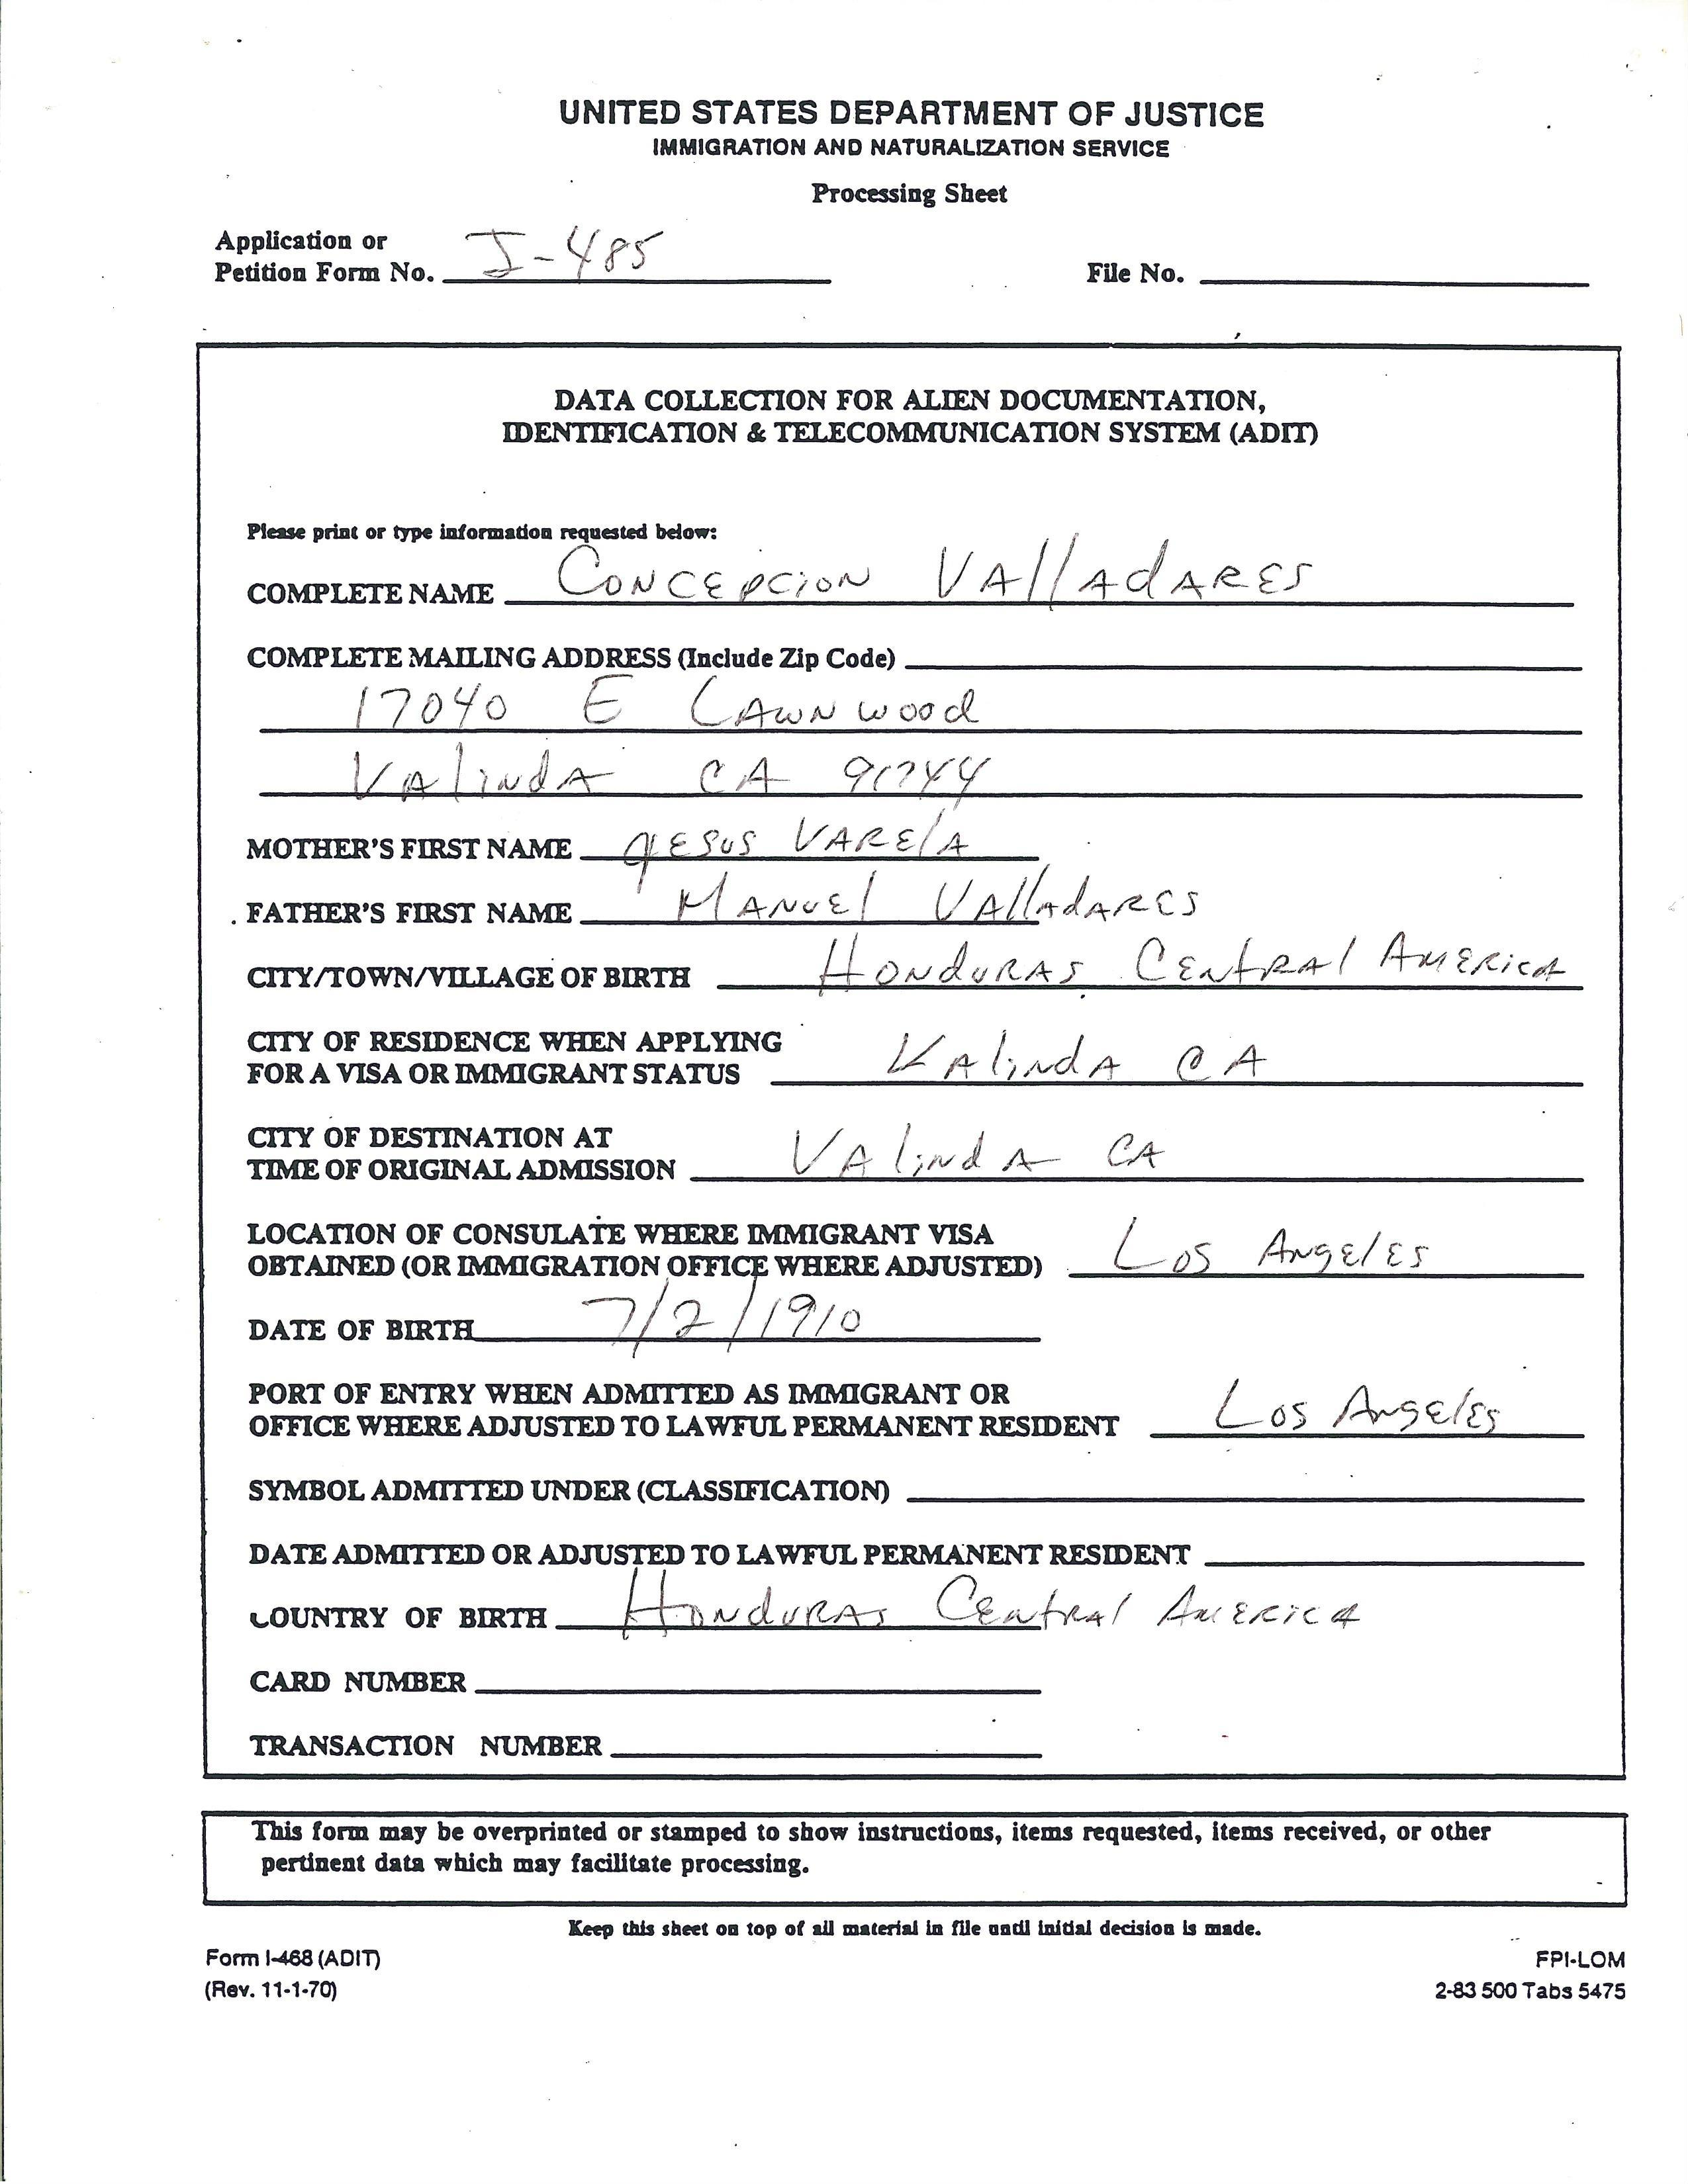 UNITED STATES DEPARTMENT OF JUSTICE
IMMIGRATION AND NATURALIZATION SERVICE
Processing Sheet
Application or
Petition Form No. I-485 File No.
DATA COLLECTION FOR ALIEN DOCUMENTATION,
IDENTIFICATION & TELECOMMUNICATION SYSTEM (ADIT)
Please print or type information requested below:
COMPLETE NAME CONCEPCION VAllAdARES
COMPLETE MAILING ADDRESS (Include Zip Code)
17040 E LAWNwood
VAlindA CA 91744
MOTHER'S FIRST NAME JESUS VARElA
FATHER'S FIRST NAME MANUEl VAllAdARES
CITY/TOWN/VILLAGE OF BIRTH HONduRAS CENtRAl AMERicA
CITY OF RESIDENCE WHEN APPLYING
FOR A VISA OR IMMIGRANT STATUS VAlindA CA
CITY OF DESTINATION AT
TIME OF ORIGINAL ADMISSION VAlindA CA
LOCATION OF CONSULATE WHERE IMMIGRANT VISA
OBTAINED (OR IMMIGRATION OFFICE WHERE ADJUSTED) Los ANgElES
DATE OF BIRTH 7/2/1910
PORT OF ENTRY WHEN ADMITTED AS IMMIGRANT OR
OFFICE WHERE ADJUSTED TO LAWFUL PERMANENT RESIDENT Los ANgElES
SYMBOL ADMITTED UNDER (CLASSIFICATION)
DATE ADMITTED OR ADJUSTED TO LAWFUL PERMANENT RESIDENT
COUNTRY OF BIRTH HONduRAS CENtRAl AMERicA
CARD NUMBER
TRANSACTION NUMBER
This form may be overprinted or stamped to show instructions, items requested, items received, or other
pertinent data which may facilitate processing.
Keep this sheet on top of all material in file until initial decision is made.
Form I-468 (ADIT) FPI-LOM
(Rev. 11-1-70) 2-83 500 Tabs 5475